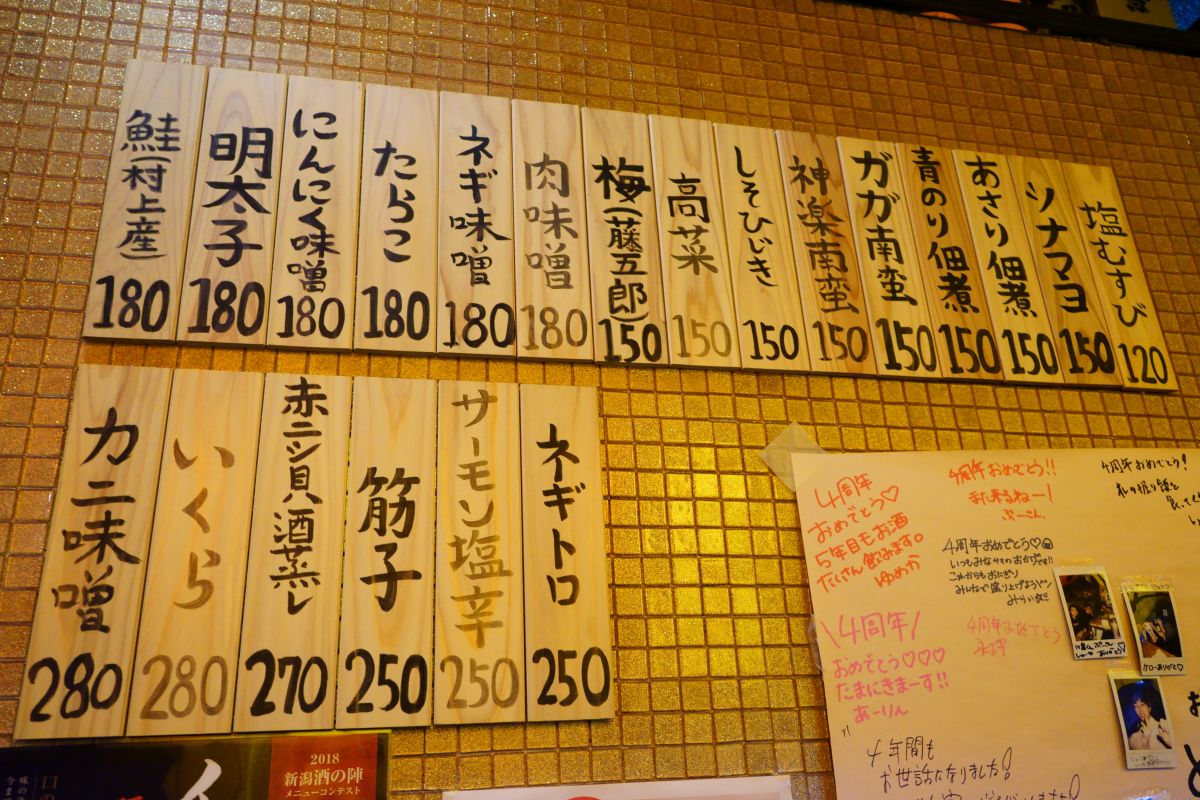 鮭(村上産)
180
明太子
180
にんにく味噌
180
たらこ
180
ネギ味噌
180
肉味噌
180
梅(藤五郎)
150
高菜
150
しそひじき
150
神楽南蛮
150
ガガ南蛮
150
青のり佃煮
150
あさり佃煮
150
ツナマヨ
150
塩むすび
120
カニ味噌
280
いくら
280
赤ニシ貝酒蒸し
270
筋子
250
サーモン塩辛
250
ネギトロ
250
4周年
おめでとう♡
5年目もお酒
たくさん飲みます。
ゆめか
4周年おめでとう!!
また来るねー!
ぶーさん
4周年おめでとう!
4周年おめでとう♡
いつもみなサマのおかげです!!
これからもおにぎり
みんなで盛り上げよう
4周年おめでとう
\4周年/
おめでとう♡♡♡
たまにきまーす!!
あーりん
4年間も
お世話になりました!
2018
新潟酒の陣
メニューコンテスト